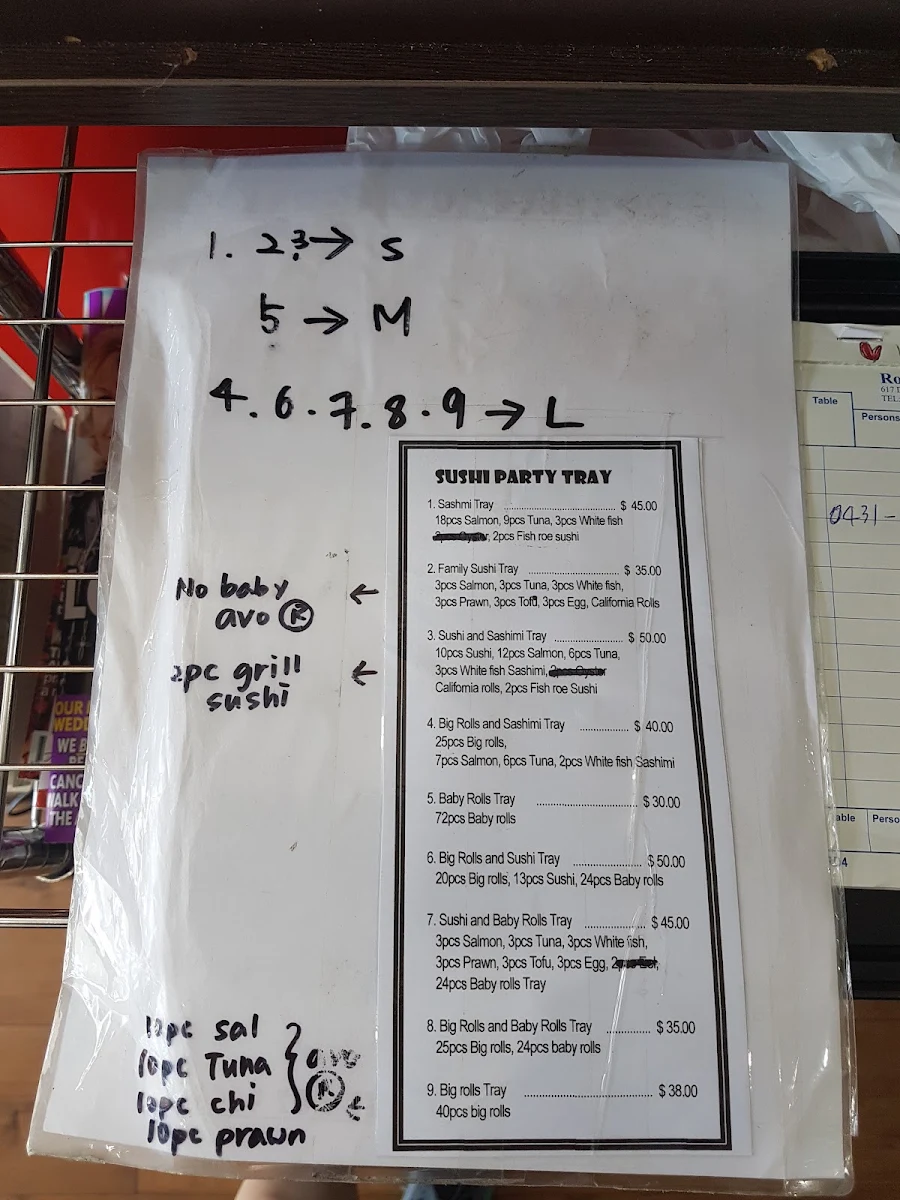 1. 2 3 → S
5 → M
4. 6. 7. 8. 9 → L
SUSHI PARTY TRAY
1. Sashmi Tray ........................ $ 45.00
18pcs Salmon, 9pcs Tuna, 3pcs White fish
, 2pcs Fish roe sushi
2. Family Sushi Tray ........................ $ 35.00
3pcs Salmon, 3pcs Tuna, 3pcs White fish,
3pcs Prawn, 3pcs Tofu, 3pcs Egg, California Rolls
No baby ←
avo Ⓡ
3. Sushi and Sashimi Tray ........................ $ 50.00
10pcs Sushi, 12pcs Salmon, 6pcs Tuna,
3pcs White fish Sashimi, 2pcs Oyster
California rolls, 2pcs Fish roe Sushi
2pc grill ←
sushi
4. Big Rolls and Sashimi Tray ................ $ 40.00
25pcs Big rolls,
7pcs Salmon, 6pcs Tuna, 2pcs White fish Sashimi
5. Baby Rolls Tray ........................ $ 30.00
72pcs Baby rolls
6. Big Rolls and Sushi Tray ................ $ 50.00
20pcs Big rolls, 13pcs Sushi, 24pcs Baby rolls
7. Sushi and Baby Rolls Tray ................ $ 45.00
3pcs Salmon, 3pcs Tuna, 3pcs White fish,
3pcs Prawn, 3pcs Tofu, 3pcs Egg,
24pcs Baby rolls Tray
8. Big Rolls and Baby Rolls Tray ............ $ 35.00
25pcs Big rolls, 24pcs baby rolls
9. Big rolls Tray ........................ $ 38.00
40pcs big rolls
10pc sal
10pc Tuna
10pc chi Ⓡ ←
10pc prawn
Table
Persons
TEL:
0431-
OUR
WE
THE